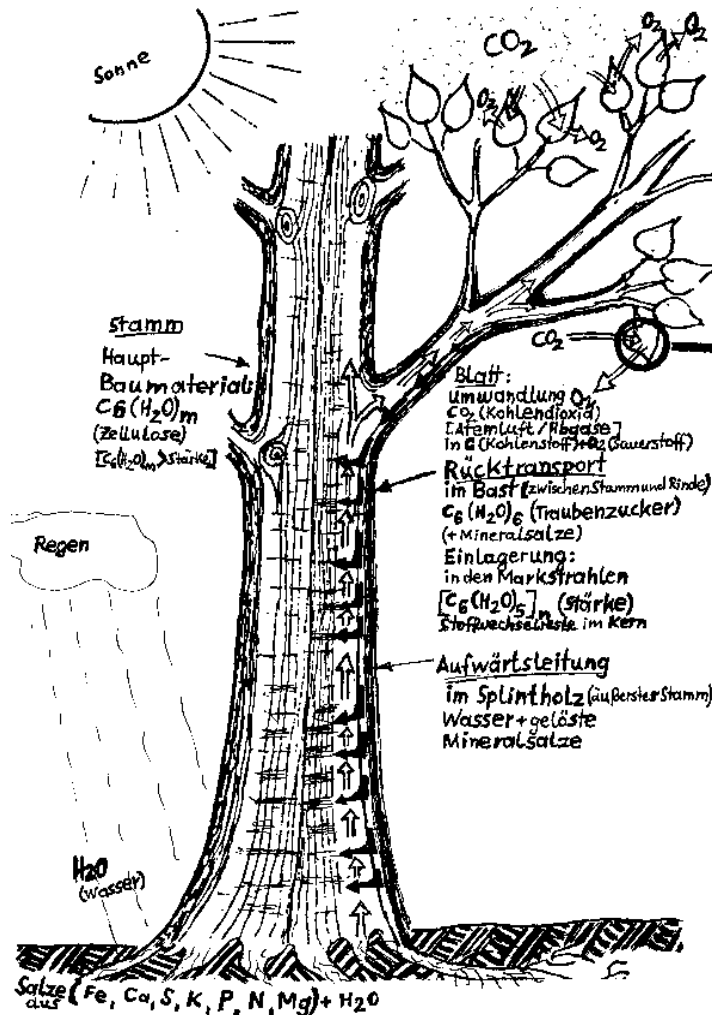 Sonne
CO2
O2
O2
O2
O2
Stamm
Haupt-
Baumaterial:
C6(H2O)m
(Zellulose)
[C6(H2O)m>Stärke]
CO2
Blatt:
Umwandlung O2
CO2 (Kohlendioxid)
[Atemluft/Abgase]
in C(Kohlenstoff)+O2(Sauerstoff)
Rücktransport
im Bast (zwischen Stamm und Rinde)
C6(H2O)6 (Traubenzucker)
(+Mineralsalze)
Einlagerung:
in den Markstrahlen
[C6(H2O)5]n (Stärke)
Stoffwechselreste im Kern
Regen
Aufwärtsleitung
im Splintholz (äußerster Stamm)
Wasser+gelöste
Mineralsalze
H2O
(Wasser)
Salze (Fe, Ca, S, K, P, N, Mg)+H2O
aus